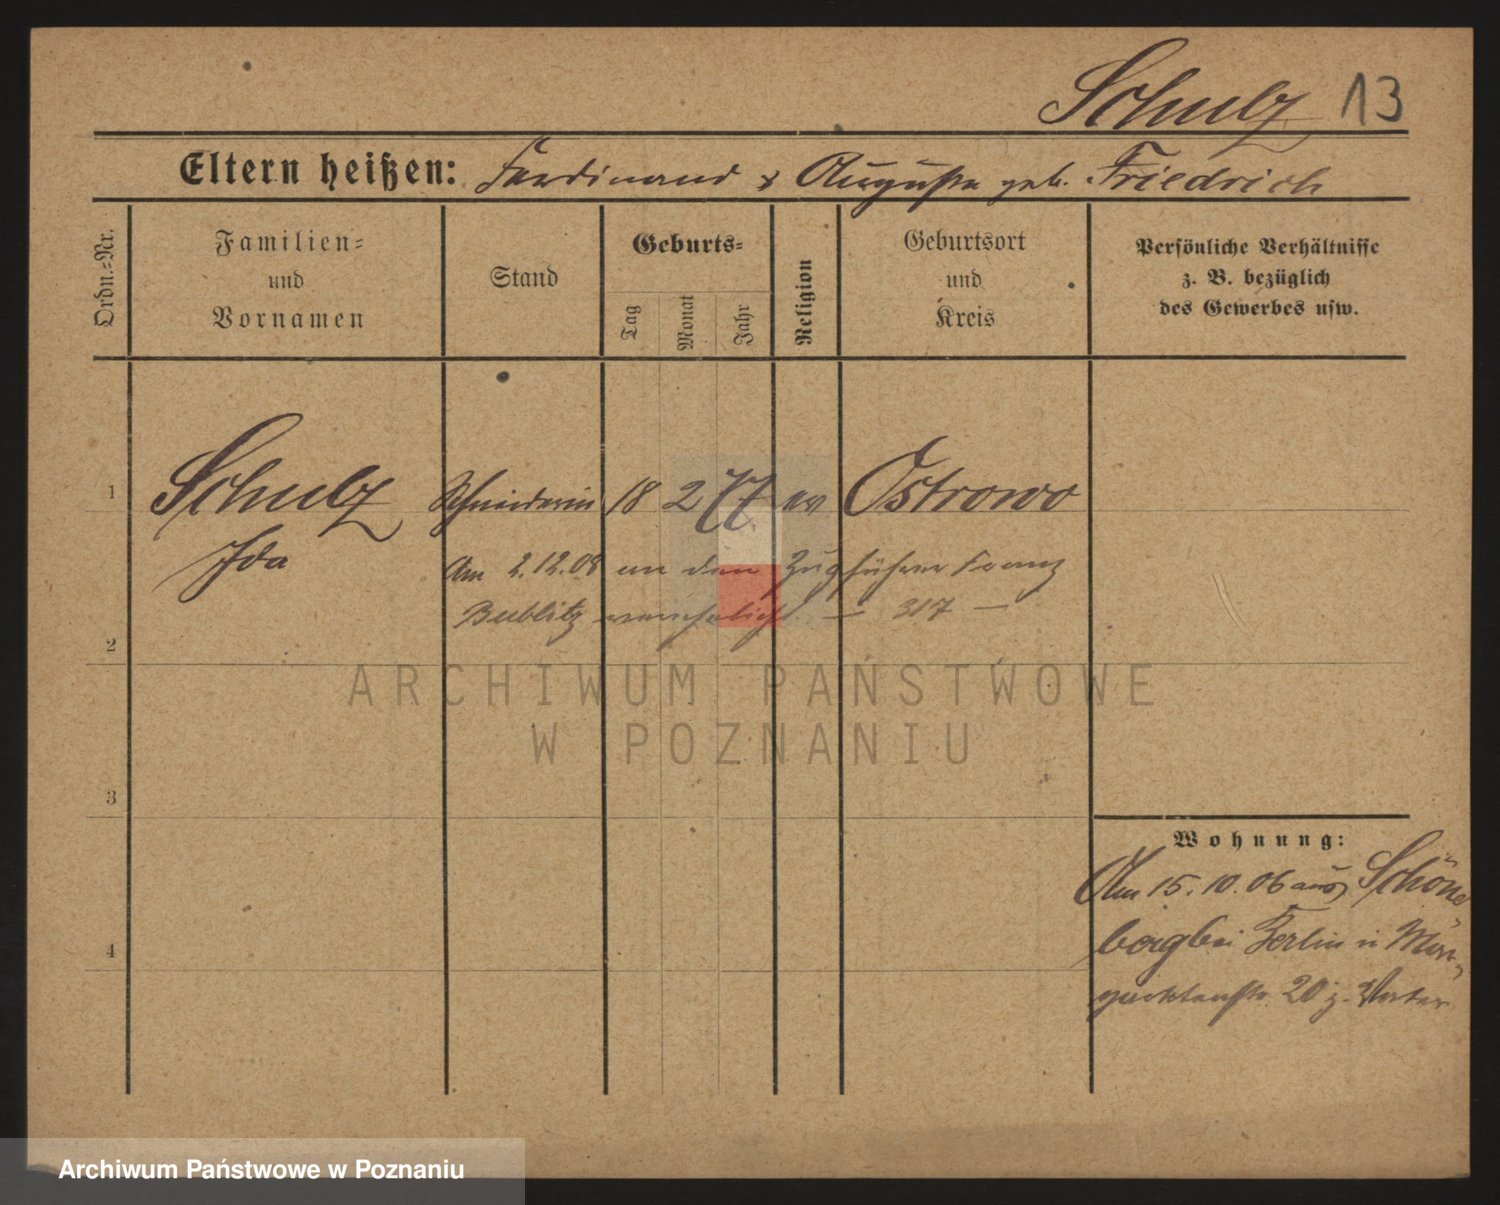 Schulz 13
Eltern heißen: Ferdinand & Auguste geb. Friedrich
Ordn.-Nr.
Familien-
und
Vornamen
Stand
Geburts-
Tag
Monat
Jahr
Religion
Geburtsort
und
Kreis
Persönliche Verhältnisse
z. B. bezüglich
des Gewerbes usw.
1 Schulz Schneiderin 18 2 77 ev Ostrowo
Ida
Am 2.12.08 an den Zugführer Franz
Bublitz verehelicht — 317 —
2
ARCHIWUM PAŃSTWOWE
W POZNANIU
3
Wohnung:
Am 15.10.06 aus Schöne
berg bei Berlin in
20 z. Vater
4
Archiwum Państwowe w Poznaniu